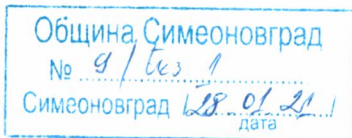 Община Симеоновград
№ 9/Екз 1
Симеоновград 28.01.21
дата